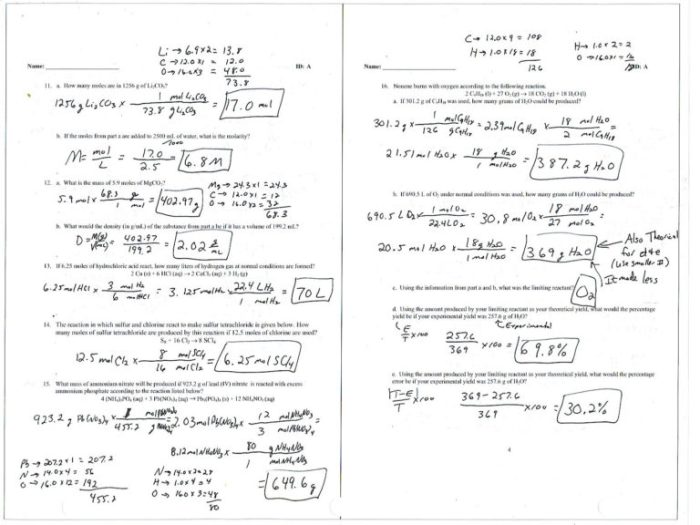 Li → 6.9x2= 13.8
C → 12.0x1 = 12.0
O → 16.0x3 = 48.0
73.8
Name: ID: A
11. a. How many moles are in 1256 g of Li₂CO₃?
1256g Li₂CO₃ x 1 mol Li₂CO₃ / 73.8 g Li₂CO₃ = 17.0 mol
b. If the moles from part a are added to 2500 mL of water, what is the molarity?
M= mol / L = 17.0 / 2.5 = 6.8 M
12. a. What is the mass of 5.9 moles of MgCO₃?
Mg → 24.3x1 = 24.3
C → 12.0x1 = 12
O → 16.0x2 = 32
68.3
5.9 mol x 68.3 g / 1 mol = 402.97g
b. What would the density (in g/mL) of the substance from part a be if it has a volume of 199.2 mL?
D = 402.97 / 199.2 = 2.02 g / mL
13. If 6.25 moles of hydrochloric acid react, how many liters of hydrogen gas at normal conditions are formed?
6.25 mol HCl x 3 mol H₂ / 6 mol HCl = 3.125 mol H₂ x 22.4 L H₂ / 1 mol H₂ = 70 L
14. The reaction in which sulfur and chlorine react to make sulfur tetrachloride is given below. How
many moles of sulfur tetrachloride are produced by this reaction if 12.5 moles of chlorine are used?
S₈ + 16 Cl₂ → 8 SCl₄
12.5 mol Cl₂ x 8 mol SCl₄ / 16 mol Cl₂ = 6.25 mol SCl₄
15. What mass of ammonium nitrate will be produced if 923.2 g of lead (IV) nitrate is reacted with excess
ammonium phosphate according to the reaction listed below?
4 (NH₄)₃PO₄ (aq) + 3 Pb(NO₃)₄ (aq) → Pb₃(PO₄)₄ (s) + 12 NH₄NO₃ (aq)
923.2 g Pb(NO₃)₄ x 1 mol Pb(NO₃)₄ / 455.2 g = 2.03 mol Pb(NO₃)₄ x 12 mol NH₄NO₃ / 3 mol Pb(NO₃)₄ =
8.12 mol NH₄NO₃ x 80 g NH₄NO₃ / 1 mol NH₄NO₃
= 649.6 g
Pb → 207.2x1 = 207.2
N → 14.0x4 = 56
O → 16.0x12 = 192
455.2
N → 14.0x2=28
H → 1.0x4=4
O → 16.0x3=48
80
C → 12.0x9 = 108
H → 1.0x18 = 18
126
H → 1.0x2=2
O → 16.0x1=16
Name: ID: A
16. Nonene burns with oxygen according to the following reaction.
2 C₉H₁₈ (l) + 27 O₂ (g) → 18 CO₂ (g) + 18 H₂O (l)
a. If 301.2 g of C₉H₁₈ was used, how many grams of H₂O could be produced?
301.2 g x 1 mol C₉H₁₈ / 126 g C₉H₁₈ = 2.39 mol C₉H₁₈ x 18 mol H₂O / 2 mol C₉H₁₈
21.51 mol H₂O x 18 g H₂O / 1 mol H₂O = 387.2 g H₂O
b. If 690.5 L of O₂ under normal conditions was used, how many grams of H₂O could be produced?
690.5 L O₂ x 1 mol O₂ / 22.4 L O₂ = 30.8 mol O₂ x 18 mol H₂O / 27 mol O₂ =
20.5 mol H₂O x 18 g H₂O / 1 mol H₂O = 369 g H₂O
Also Theorical
for d+e
(use smaller #)
It made less
c. Using the information from part a and b, what was the limiting reactant?
O₂
d. Using the amount produced by your limiting reactant as your theoretical yield, what would the percentage
yield be if your experimental yield was 257.6 g of H₂O?
Experimental
E / T x100 257.6 / 369 x100 = 69.8%
e. Using the amount produced by your limiting reactant as your theoretical yield, what would the percentage
error be if your experimental yield was 257.6 g of H₂O?
|T-E| / T x100 369-257.6 / 369 x100 = 30.2%
4